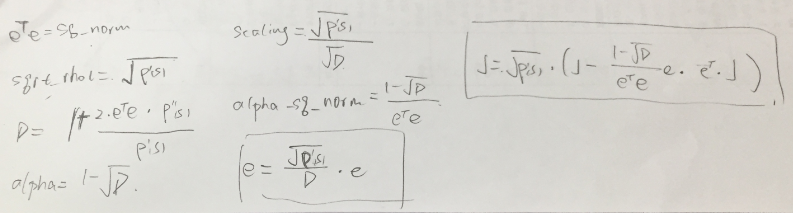 eᵀe = sq_norm
sqrt_rho1 = √p'(s)
D = 1 + 2·eᵀe · p''(s) / p'(s)
alpha = 1-√D.
scaling = √p'(s) / √D
alpha_sq_norm = 1-√D / eᵀe
e = √p'(s) / D · e
J = √p'(s) · (J - 1-√D / eᵀe e · eᵀ · J)